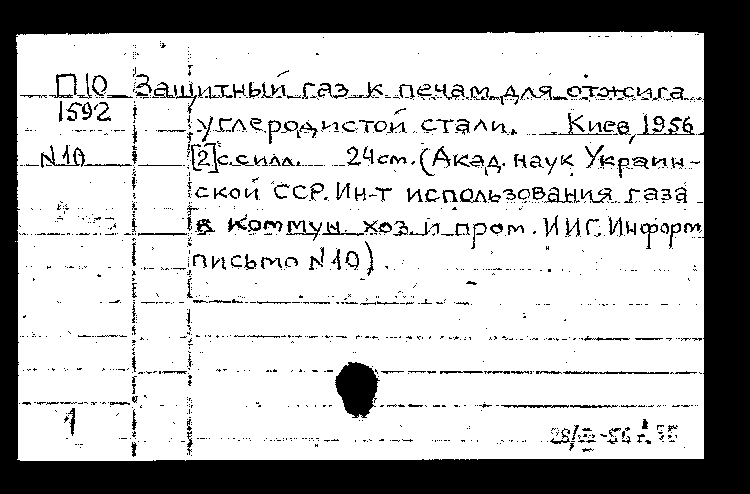 П10 Защитный газ к печам для отжига
1592
углеродистой стали. Киев, 1956
N10 [2]с.силл. 24см. (Акад. наук Украин-
ской ССР. Ин-т использования газа
в коммун. хоз. и пром. ИИГ. Информ
письмо N10)
1